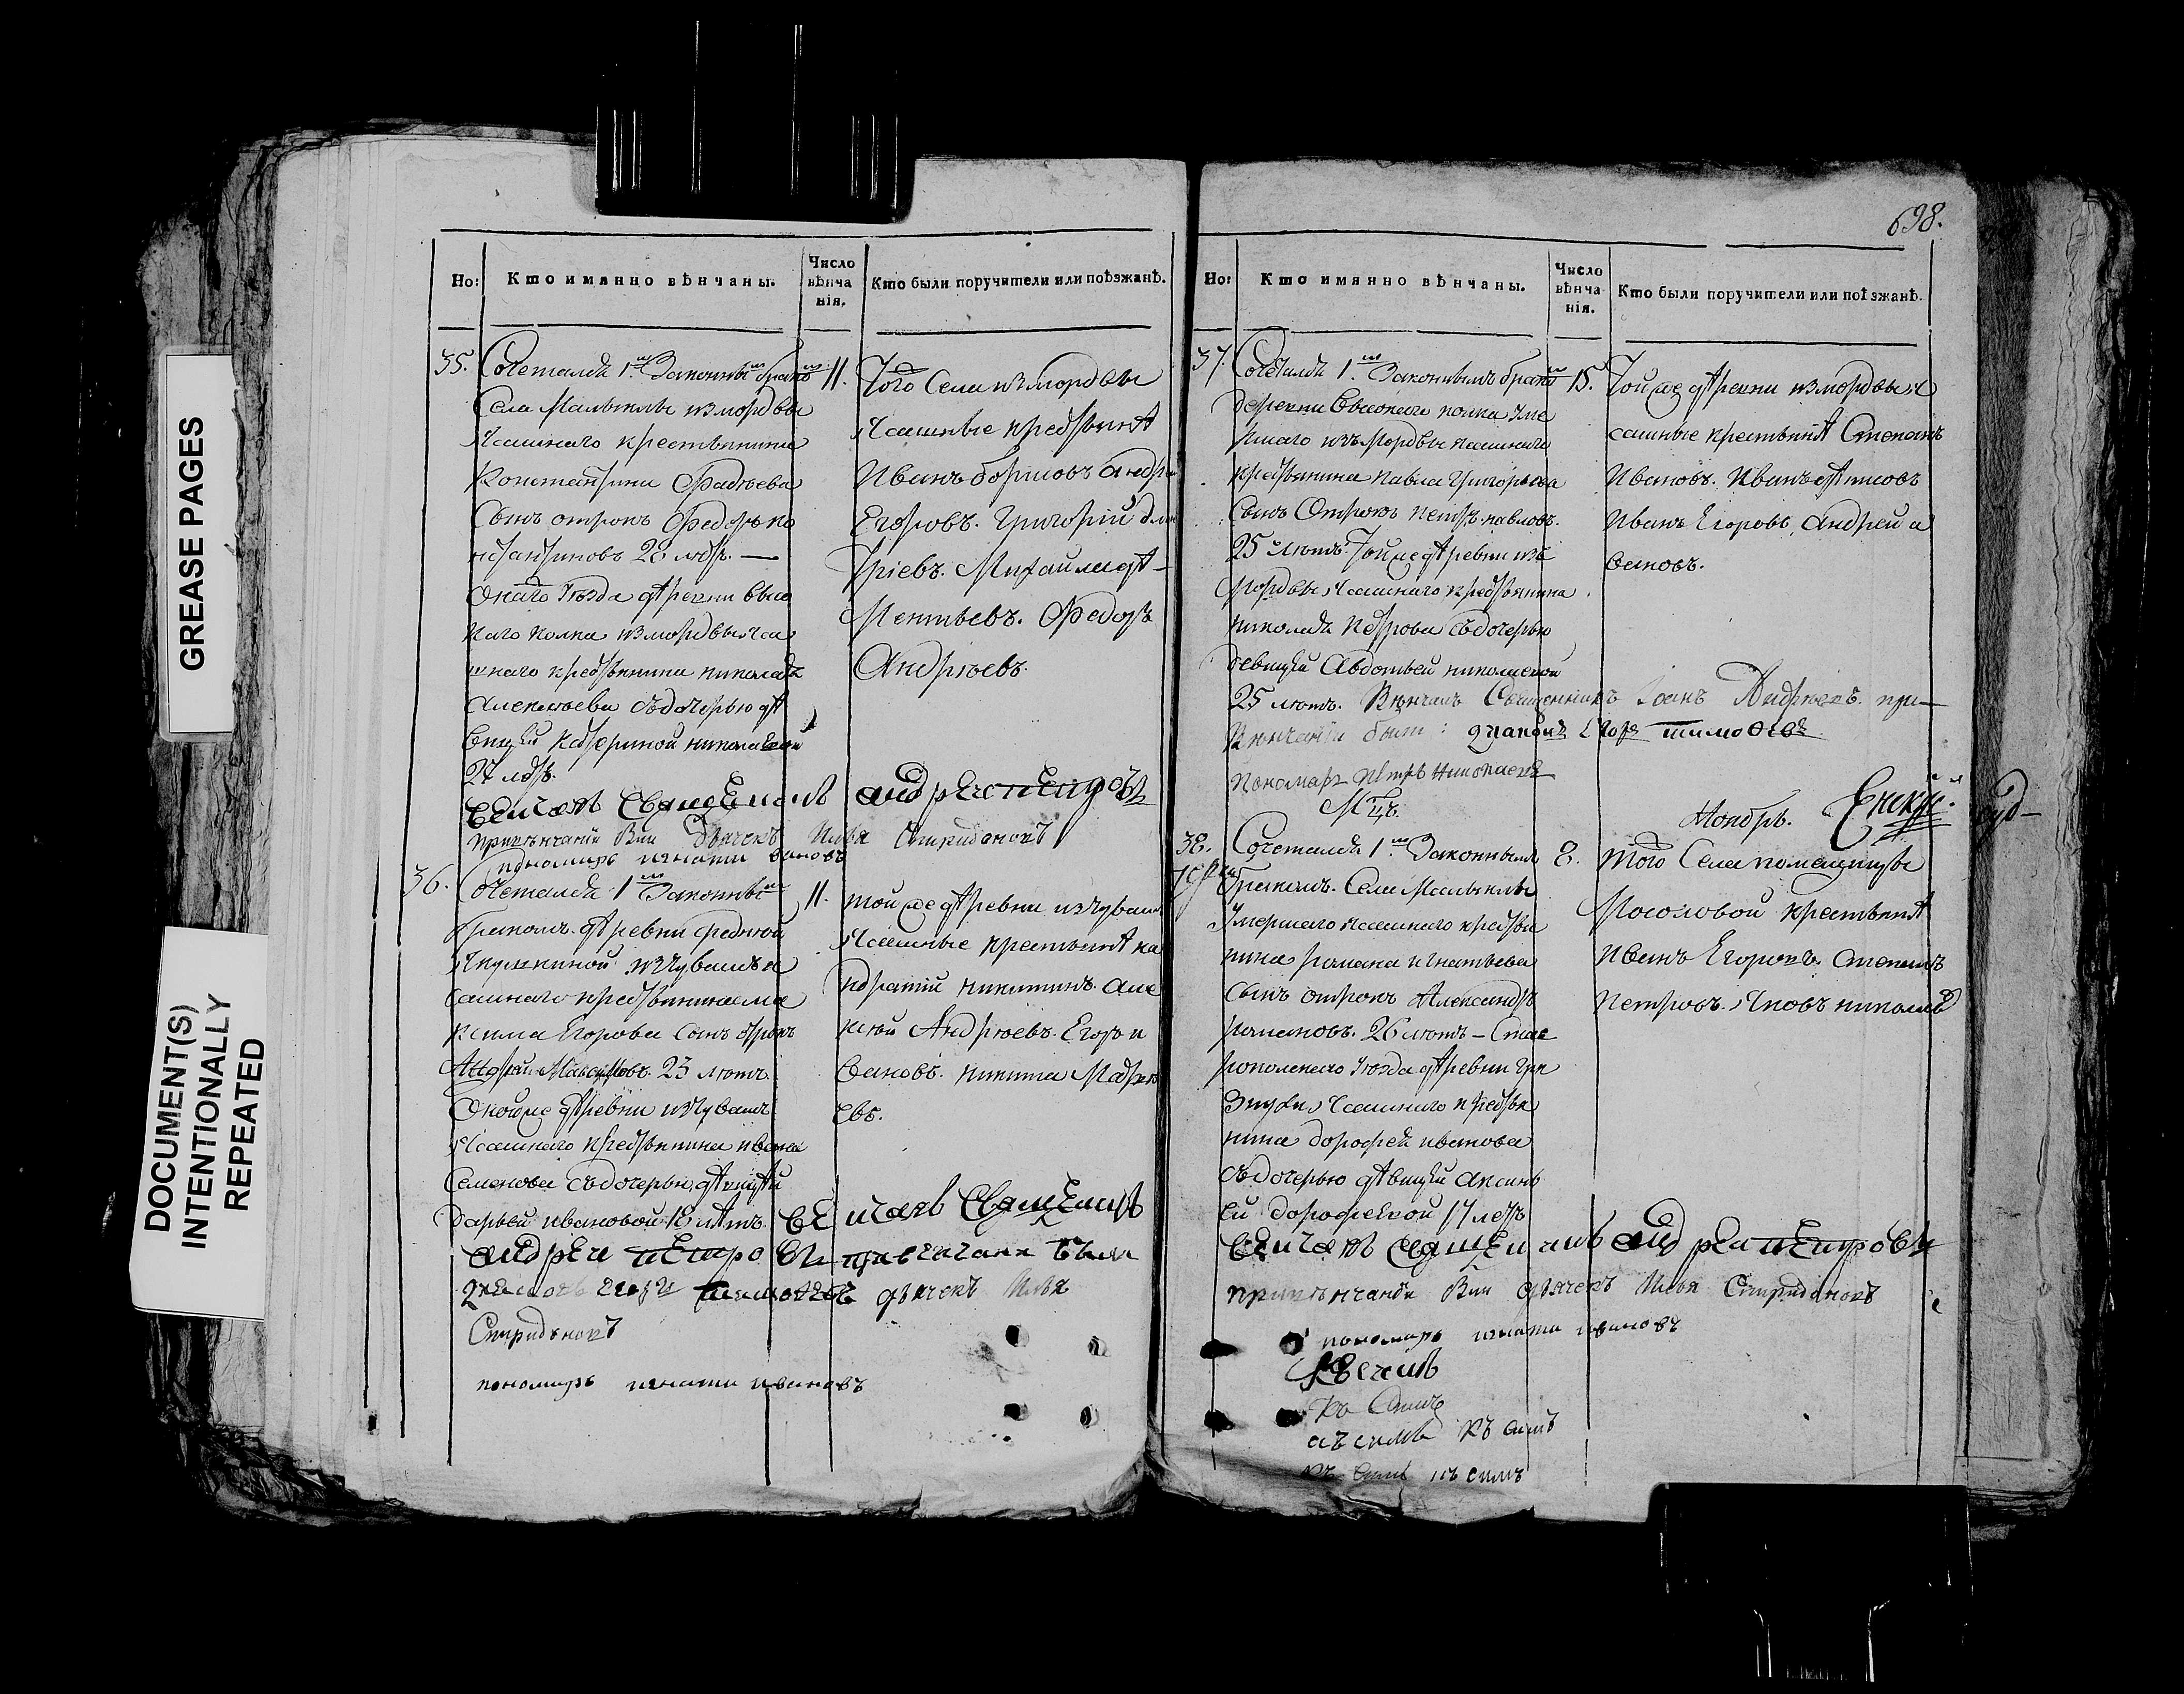 GREASE PAGES
DOCUMENT(S)
INTENTIONALLY
REPEATED
Но:
Кто имянно вѣнчаны.
Число
вѣнча
нія.
Кто были поручители или поѣзжанѣ.
35.
Сочетался 1.м Законнымъ бракомъ
Села Малыклы изморӗвы
Ясашнаго крестьянина
Константина Фадѣева
Сынъ отрокъ Федоръ ко
нстантиновъ 28 лѣтъ.
Онаго Уѣзда деревни Высо
каго колка измордвы яса
шнаго крестьянина николая
Алексѣева съдочерью дѣ
вицей Катериной николаевой
27 лѣтъ.
венчалъ Священникъ андреи петровъ
привѣнчаніи были дьячекъ Илья Спиридоновъ
пономарь игнати ивановъ
11.
Того Села измордвы
Ясашные крестьянѣ
Иванъ борисовъ Андрей
Егоровъ. Григорій дми
тріевъ. Михайла дѣ
ментьевъ. Федоръ
Андрѣевъ.
36.
Сочетался 1м Законнымъ
бракомъ деревни средней
Якушкиной изчувашъ я
сашнаго крестьянина ма
ксима Егорова Сынъ отрокъ
Андрей Максимовъ. 23 лѣтъ.
Оной же деревни изчувашъ
Ясашнаго крестьянина ивана
Семенова съдочерью дѣвицей
дарьей ивановой 18 лѣтъ. венчалъ Священникъ
андреи петровъ привенчани были
диаконъ егоръ тимофеевъ дьячекъ Илья
Спиридоновъ
пономарь игнати ивановъ
11.
той же деревни изчувашъ
Ясашные крестьянѣ ко
ндратій никитинъ. Але
ксѣй Андрѣевъ. Егоръ и
вановъ. никита Матвѣ
евъ.
698.
Но:
Кто имянно вѣнчаны.
Число
вѣнча
нія.
Кто были поручители или поѣзжанѣ.
37.
Сочетался 1.м Законнымъ бракомъ
деревни Высокаго колка Уме
ршаго изъ Мордвы ясашнаго
крестьянина Павла Григорьева
Сынъ Отрокъ петръ павловъ.
25 лѣтъ. Той же деревни изъ
Мордвы Ясашнаго крестьянина
николая Петрова съдочерью
девицей Авдотьей николаевой
25 лѣтъ. Вѣнчалъ Священникъ Іоанъ Андрѣевъ. при
Вѣнчаніи были: диаконъ Егоръ тимофеевъ
Пономарь Петръ Николаевъ
15.
Той же деревни измордвы я
сашные крестьянѣ Степанъ
Ивановъ. Иванъ
Иванъ Егоровъ, Андрей и
вановъ.
Мцъ.
Ноябрь.
38.
Сочетался 1.м Законнымъ
бракомъ. Села Малыклы
Умершаго ясашнаго кресья
нина романа игнатьева
сынъ отрокъ Александръ
романовъ. 26 лѣтъ – Став
ропольскаго Уѣзда деревни Гря
знухи, Ясашнаго крестья
нина дорофея иванова
съдочерью дѣвицей аксинь
ей дорофеевой 17 летъ
венчалъ священникъ андреи петровъ
привѣнчаніи были дьячекъ Илья Спиридоновъ
пономарь игнати ивановъ
8.
того Села помещицы
Мосоловой крестьянѣ
Иванъ Егоровъ. Степанъ
Петровъ. Яковъ николаевъ
Къ Симъ
къ симъ